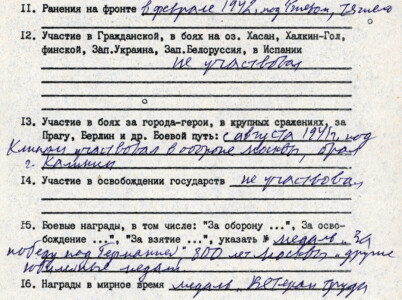 II. Ранения на фронте в феврале 1942, под Ржевом, тяжело
I2. Участие в Гражданской, в боях на оз. Хасан, Халкин-Гол,
финской, Зап.Украина, Зап.Белоруссия, в Испании
не участвовал
I3. Участие в боях за города-герои, в крупных сражениях, за
Прагу, Берлин и др. Боевой путь: с августа 1941г. под
Клином участвовал в обороне Москвы, брал
г. Калинин
I4. Участие в освобождении государств не участвовал
I5. Боевые награды, в том числе: "За оборону ...", За осво-
бождение ...", "За взятие ...", указать № медаль „За
победу под Германией", 800 лет Москвы и другие
юбилейные медали
I6. Награды в мирное время медаль „Ветеран труда